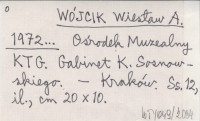 WÓJCIK Wiesław A.
1972... Ośrodek Muzealny
KTG. Gabinet K. Sosnow-
skiego. — Kraków. Ss. 12,
il., cm 20 x 10.